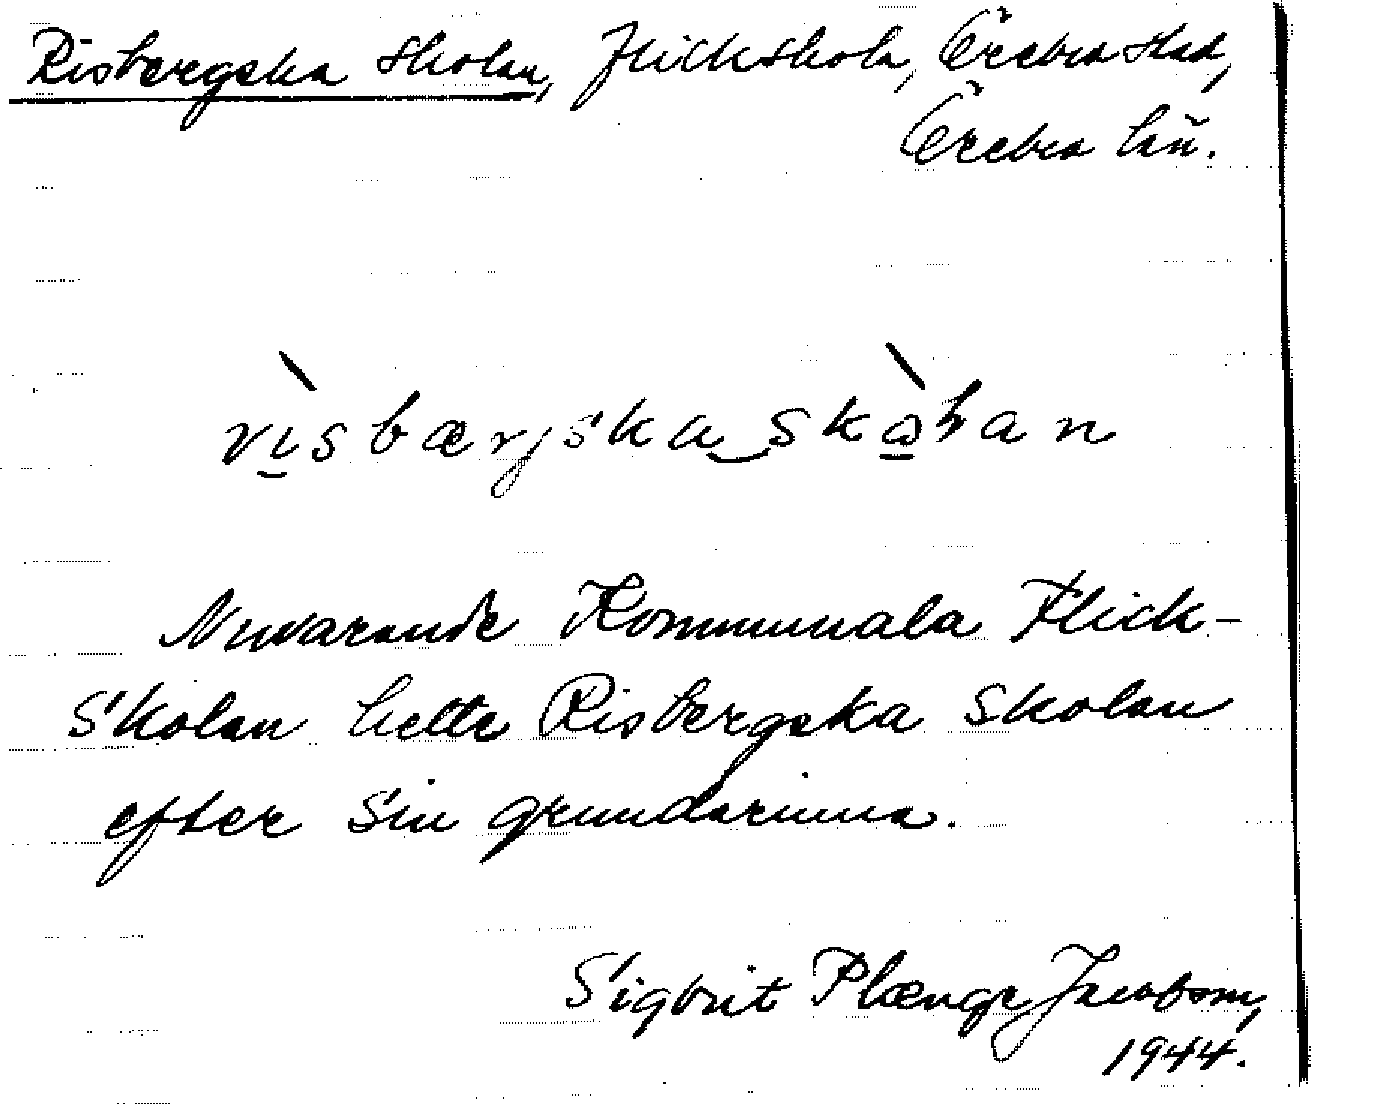 Risbergska skolan, Flickskola, Örebro stad,
Örebro län.
Nuvarande Kommunala Flick-
skolan hette Risbergska skolan
efter sin grundarinna.
Sigbrit Plænge Jacobson,
1944.